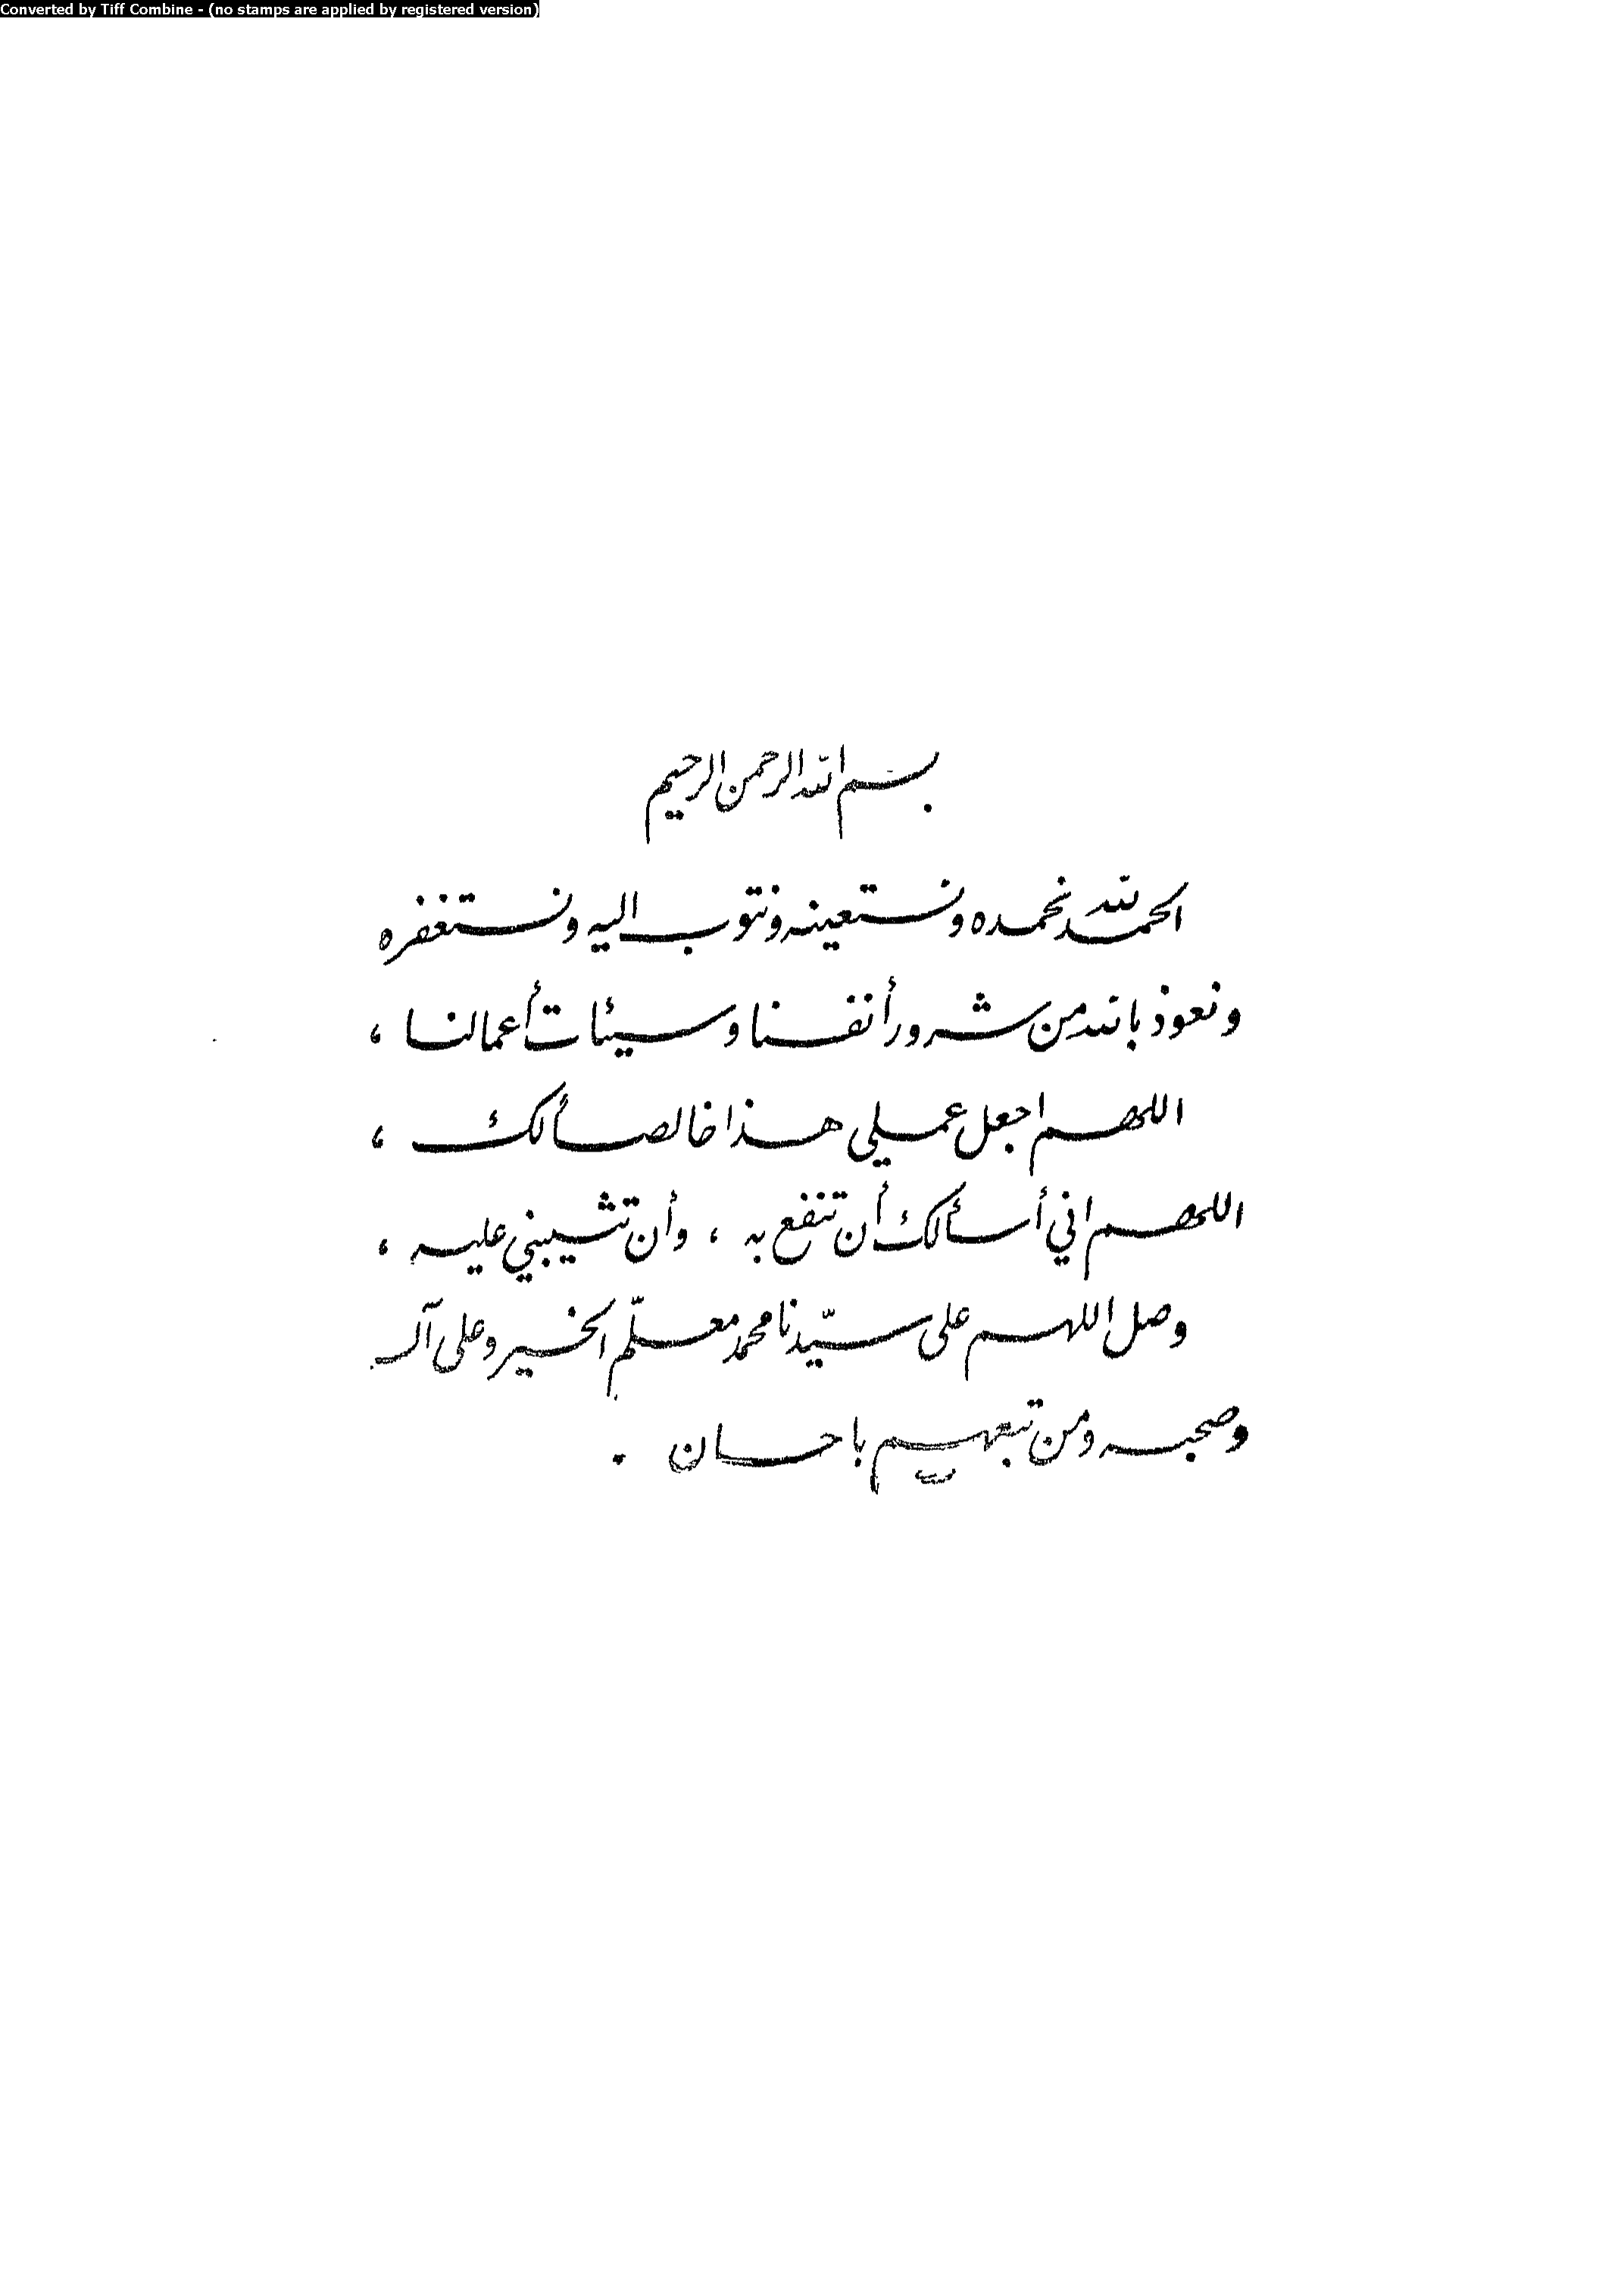 Converted by Tiff Combine - (no stamps are applied by registered version)
بسم الله الرحمن الرحيم
الحمد لله نحمده ونستعينه ونتوب اليه ونستغفره
ونعوذ بالله من شرور أنفسنا وسيئات أعمالنا ،
اللهم اجعل عملي هذا خالصاً لك ،
اللهم اني أسألك أن تنفع به ، وأن تثيبني عليه ،
وصل اللهم على سيّدنا محمد معلّم الخير وعلى آله
وصحبه ومن تبعهم باحسان .